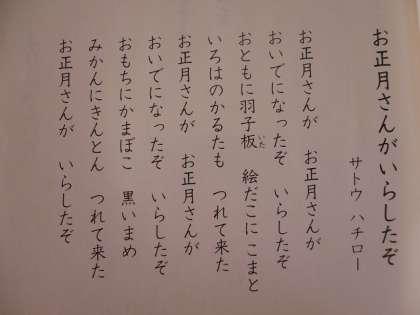 お正月さんがいらしたぞ
サトウ ハチロー
お正月さんが お正月さんが
おいでになったぞ いらしたぞ
おともに羽子板 絵だこに こまと
いた
いろはのかるたも つれて来た
お正月さんが お正月さんが
おいでになったぞ いらしたぞ
おもちにかまぼこ 黒いまめ
みかんにきんとん つれて来た
お正月さんが いらしたぞ